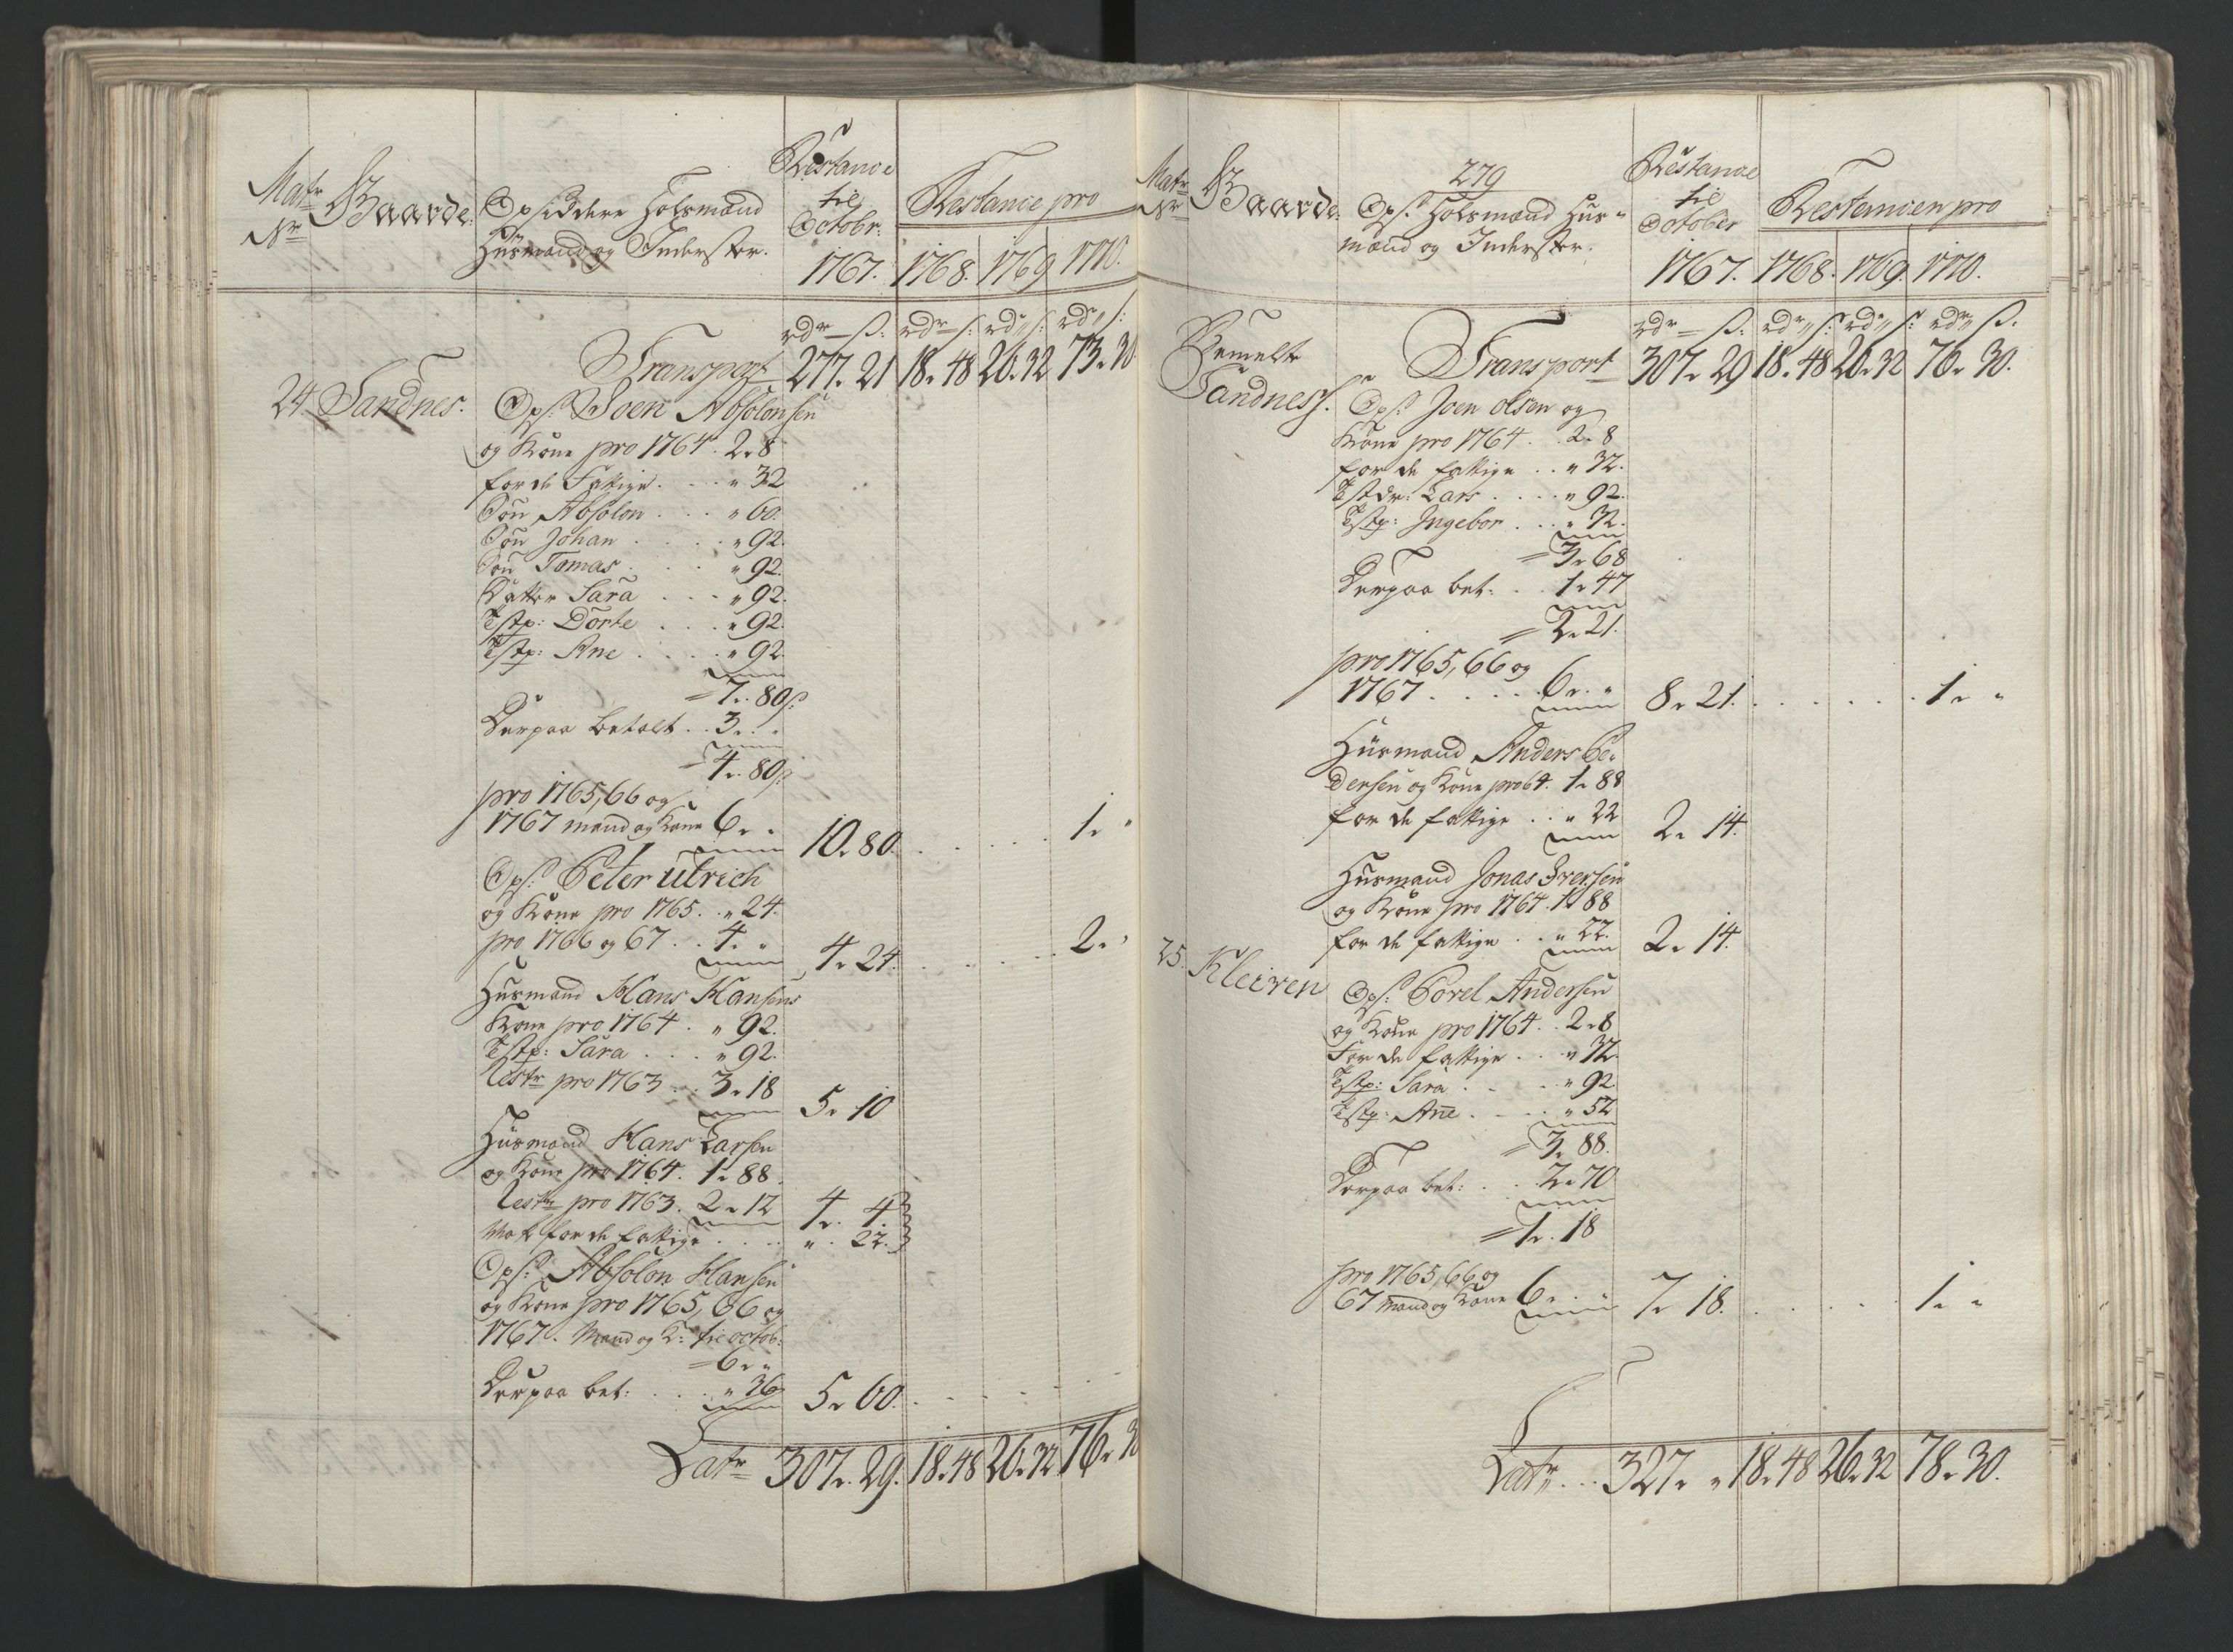 Matr Nr
Gaarde
Opsiddere Holsmænd
Huusmænd og Inderster.
Restance til Octobr: 1767.
Restance pro
1768. 1769 1770.
rdr — s: rdr — s: rd s: rd s:
Transport 277. 21 18. 48 26. 32 73. 30
24 Sandnes.
Ops: Joen Absolonsen
og Kone pro 1764. 2. 8
for de Fattige. . . „ 32
Søn Absolon . . . „ 60.
Søn Johan . . . . „ 92.
Søn Tomas . . . „ 92.
Datter Sara . . . „ 92.
Tstp: Dorte . . . „ 92.
Tstp: Ane . . . . „ 92.
= 7. 80 s:
Derpaa betalt . . 3. „
= 4. 80 s:
pro 1765, 66 og
1767 mand og Kone 6. „ 10. 80. . . . . . 1. „
Ops: Peter Ulrich
og Kone pro 1765. . „ 24.
pro 1766 og 67 . . 4. „ 4. 24. . . . . . 2. „
Husmand Hans Hansens
Kone pro 1764 . „ 92.
Tstp: Sara . . . „ 92.
Restr pro 1763 . . 3. 18 5. 10
Huusmand Hans Larsen
og Kone pro 1764. 1. 88.
Restr pro 1763. 2. 12 4. 4.
for de fattige . . . . „ 22.
Ops: Absolon Hansen
og Kone pro 1765, 66 og
1767. Mand og K: til octob:
= 6. „
Derpaa bet: . . . „ 36 5. 60. . . . . .
Latr 307. 29. 18. 48 26. 32 76. 30
279
Matr Nr
Gaarde.
Ops: Holsmænd Hus-
mænd og Inderster.
Restance til October 1767.
Restancen pro
1768. 1769. 1770.
rdr — s: rdr „ s: rd „ s: rdr „ s.
Bemelte Sandness.
Transport 307. 29 18. 48 26. 32 76. 30.
Ops: Joen Olsen og
Kone pro 1764 . . 2. 8
for de fattige . . „ 32.
Tstdr: Lars . . . . „ 92.
Tstp: Ingebor . . . „ 32.
= 3. 68
Derpaa bet: . . 1. 47
= 2. 21.
pro 1765, 66 og
1767 . . . . . 6. „ 8. 21. . . . . . . 1. „
Huusmand Anders Pe-
dersen og Kone pro 64. 1. 88
for de fattige . . „ 22 2. 14.
Husmand Jonas Iversen
og Kone pro 1764. 1. 88
for de fattige . . „ 22. 2. 14.
25. Kleiven
Ops: Povel Andersen
og Kone pro 1764. . 2. 8
For de fattige . . „ 32.
Tstp: Sara . . . . „ 92
Tstp: Ane . . . . „ 52
= 3. 88.
Derpaa bet: . . 2. 70
= 1. 18
pro 1765, 66 og
67 Mand og Kone 6. „ 7. 18. . . . . . 1. „
Latr . . . 327. „ 18. 48 26. 32 78. 30.